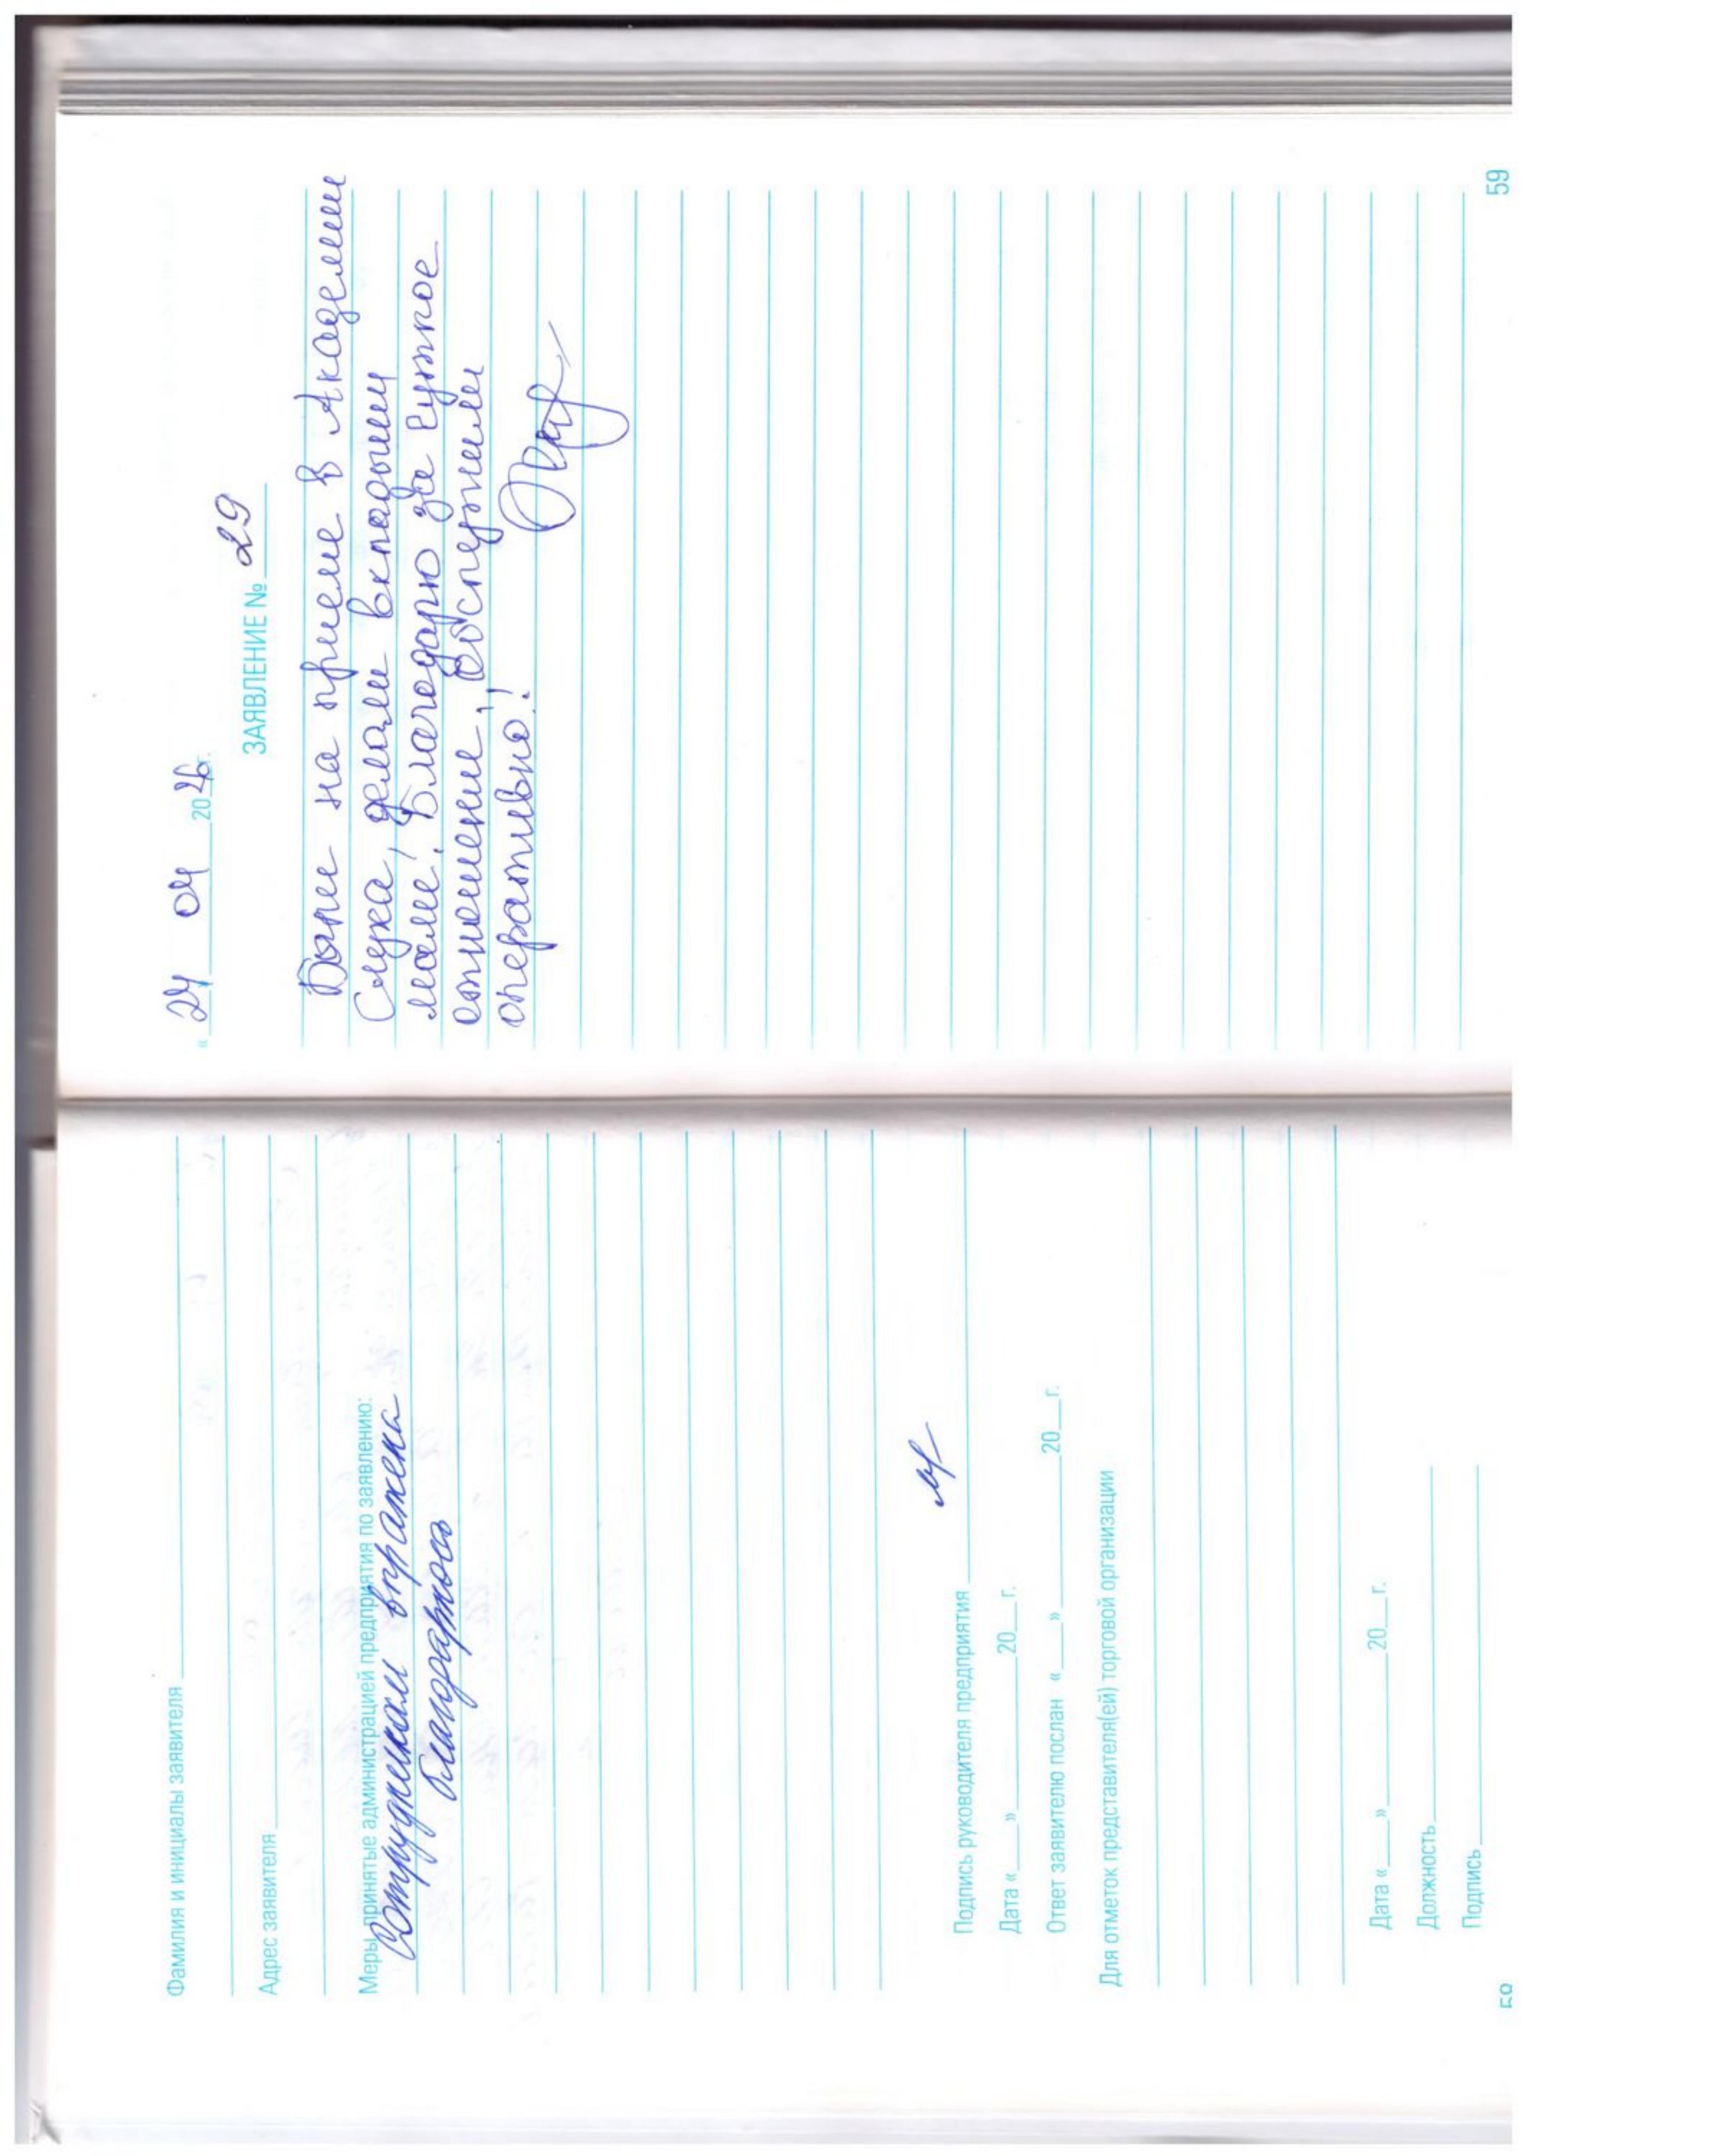 Фамилия и инициалы заявителя
Адрес заявителя
Меры принятые администрацией предприятия по заявлению:
Сотрудникам выражена
благодарность
Подпись руководителя предприятия
Дата «___»______20__г.
Ответ заявителю послан «___»______20__г.
Для отметок представителя(ей) торговой организации
Дата «___»______20__г.
Должность
Подпись
58
« 24 04 2026 г.
ЗАЯВЛЕНИЕ № 29
Были на приеме в Академии
Слуха, делали вкладыши
маме! Благодарю за чуткое
отношение, обслужили
оперативно!
59